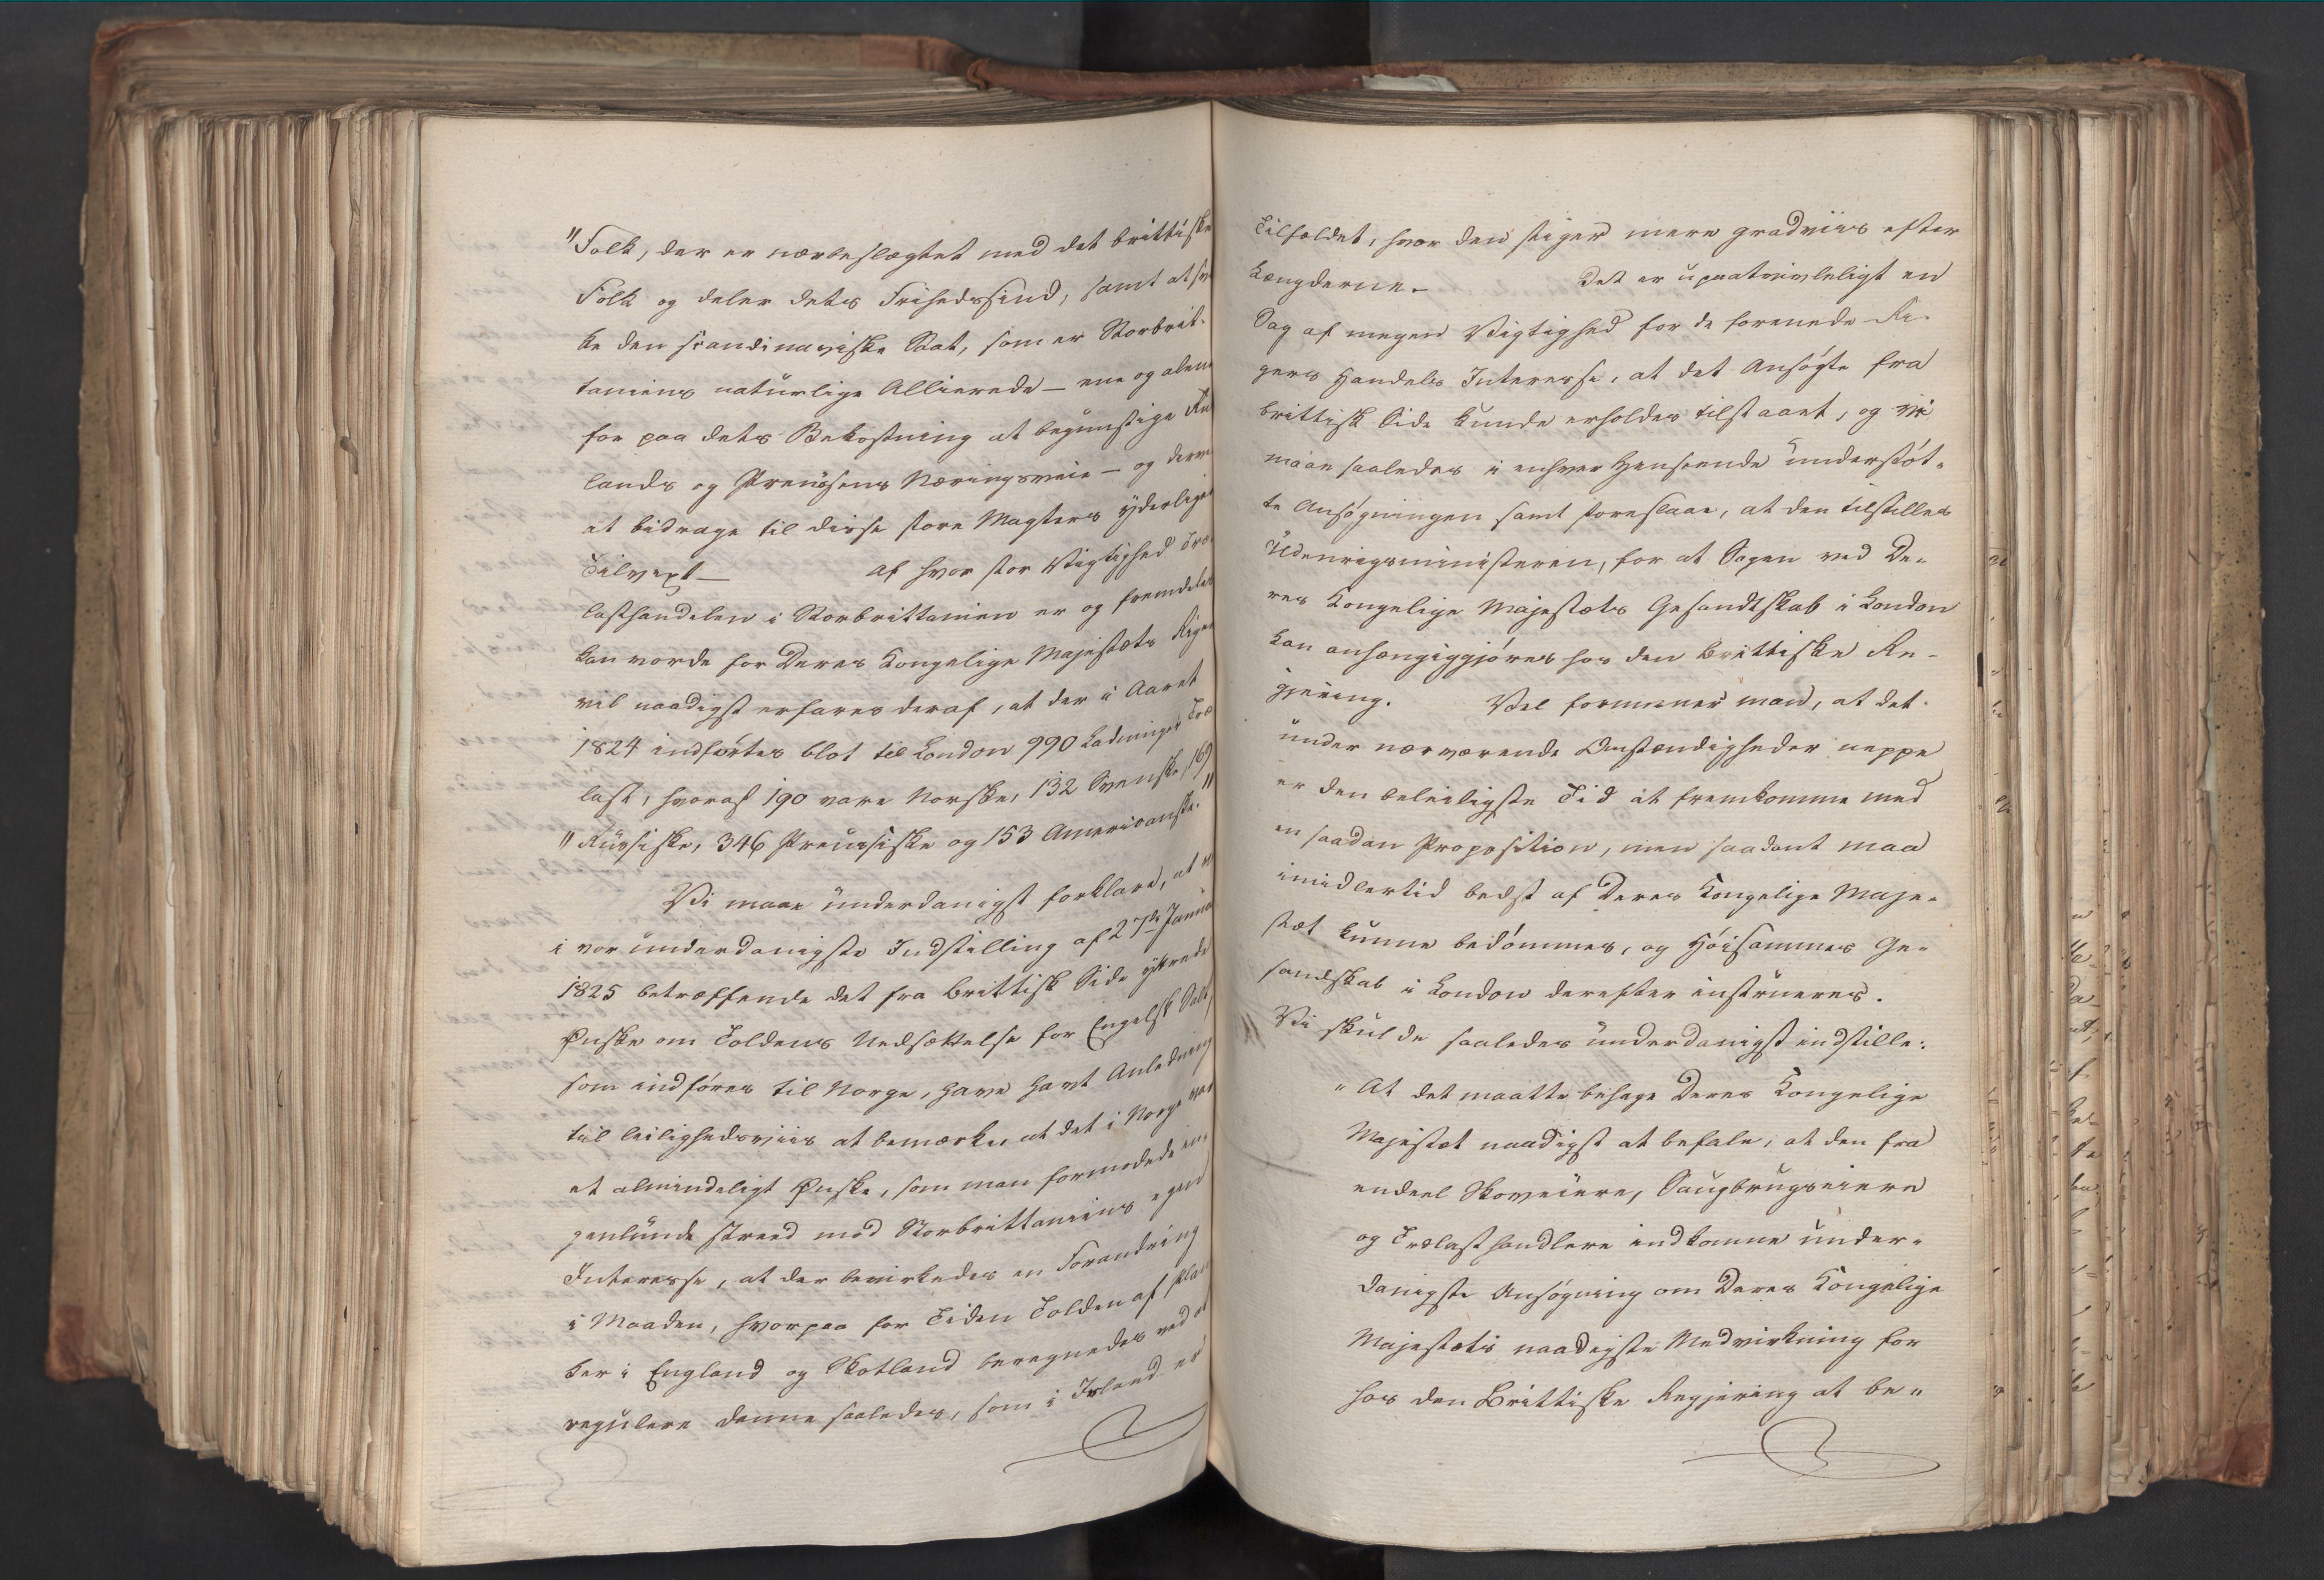 "Folk, der er nærbeslægtet med det brittiske
Folk og deler dets Frihedssind, samt at
ke den scandinaviske Stat, som er Storbrit-
taniens naturlige Allierede – ene og alene
for paa dets Bekostning at begunstige Rus
lands og Preussens Næringsveie – og derved
at bidrage til disse store Magters yderligere
Tilvext – Af hvor stor Vigtighed Træ-
lasthandelen i Storbrittanien er og fremdeles
kan vorde for Deres Kongelige Majestæts Riger
vil naadigst erfares deraf, at der i Aaret
1824 indførtes blot til London 990 Ladninger Træ
last, hvoraf 190 vare Norske, 132 Svenske, 169
"Russiske, 346 Preussiske og 153 Americanske."
Vi maae underdanigst forklare, at vi
i vor underdanigste Indstilling af 27de Janua
1825 betræffende det fra Brittisk Side yttrede
Ønske om Toldens Nedsættelse for Engelsk Salt,
som indføres til Norge, have havt Anledning
til leilighedsviis at bemærke, at det i Norge var
et almindeligt Ønske, som man formodede in-
genlunde streed mod Storbrittaniens egen
Interesse, at der bevirkedes en Forandring
i Maaden, hvorpaa for Tiden Tolden af Plan
ker i England og Skotland beregnedes ved at
regulere denne saaledes, som i Irland er
Tilfældet, hvor den stiger mere gradviis efter
Længderne. – Det er upaatvivleligt en
Sag af megen Vigtighed for de forenede Ri-
gers Handels Interesse, at det Ansøgte fra
brittisk Side kunde erholdes tilstaaet, og vi
maae saaledes i enhver Henseende understøt-
te Ansøgningen samt foreslaae, at den tilstilles
Udenrigsministeren, for at Sagen ved De-
res Kongelige Majestæts Gesandtskab i London
kan anhængiggjøres hos den Brittiske Re-
gjering. Vel formener man, at det
under nærværende Omstændigheder neppe
er den beleiligste Tid at fremkomme med
en saadan Proposition, men saadant maa
imidlertid bedst af Deres Kongelige Maje-
stæt kunne bedømmes, og Høisammes Ge-
sandskab i London derefter instrueres.
Vi skulde saaledes underdanigst indstille:
"At det maatte behage Deres Kongelige
Majestæt naadigst at befale, at den fra
endeel Skoveiere, Saugbrugseiere
og Trælasthandlere indkomne under-
danigste Ansøgning om Deres Kongelige
Majestæts naadigste Medvirkning for
hos den Brittiske Regjering at be-